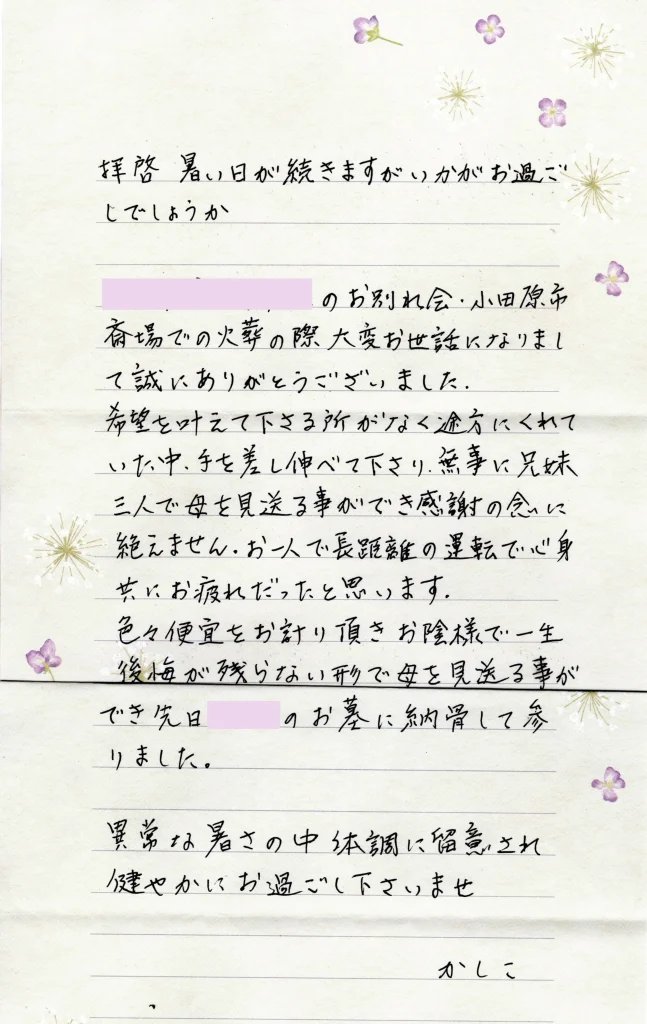 拝啓 暑い日が続きますがいかがお過ご
しでしょうか
のお別れ会・小田原市
斎場での火葬の際 大変お世話になりまし
て誠にありがとうございました.
希望を叶えて下さる所がなく途方にくれて
いた中、手を差し伸べて下さり、無事に兄妹
三人で母を見送る事ができ感謝の念に
絶えません。お一人で長距離の運転で心身
共にお疲れだったと思います.
色々便宜をお計り頂きお陰様で一生
後悔が残らない形で母を見送る事が
でき先日 のお墓に納骨して参
りました。
異常な暑さの中 体調に留意され
健やかにお過ごし下さいませ
かしこ